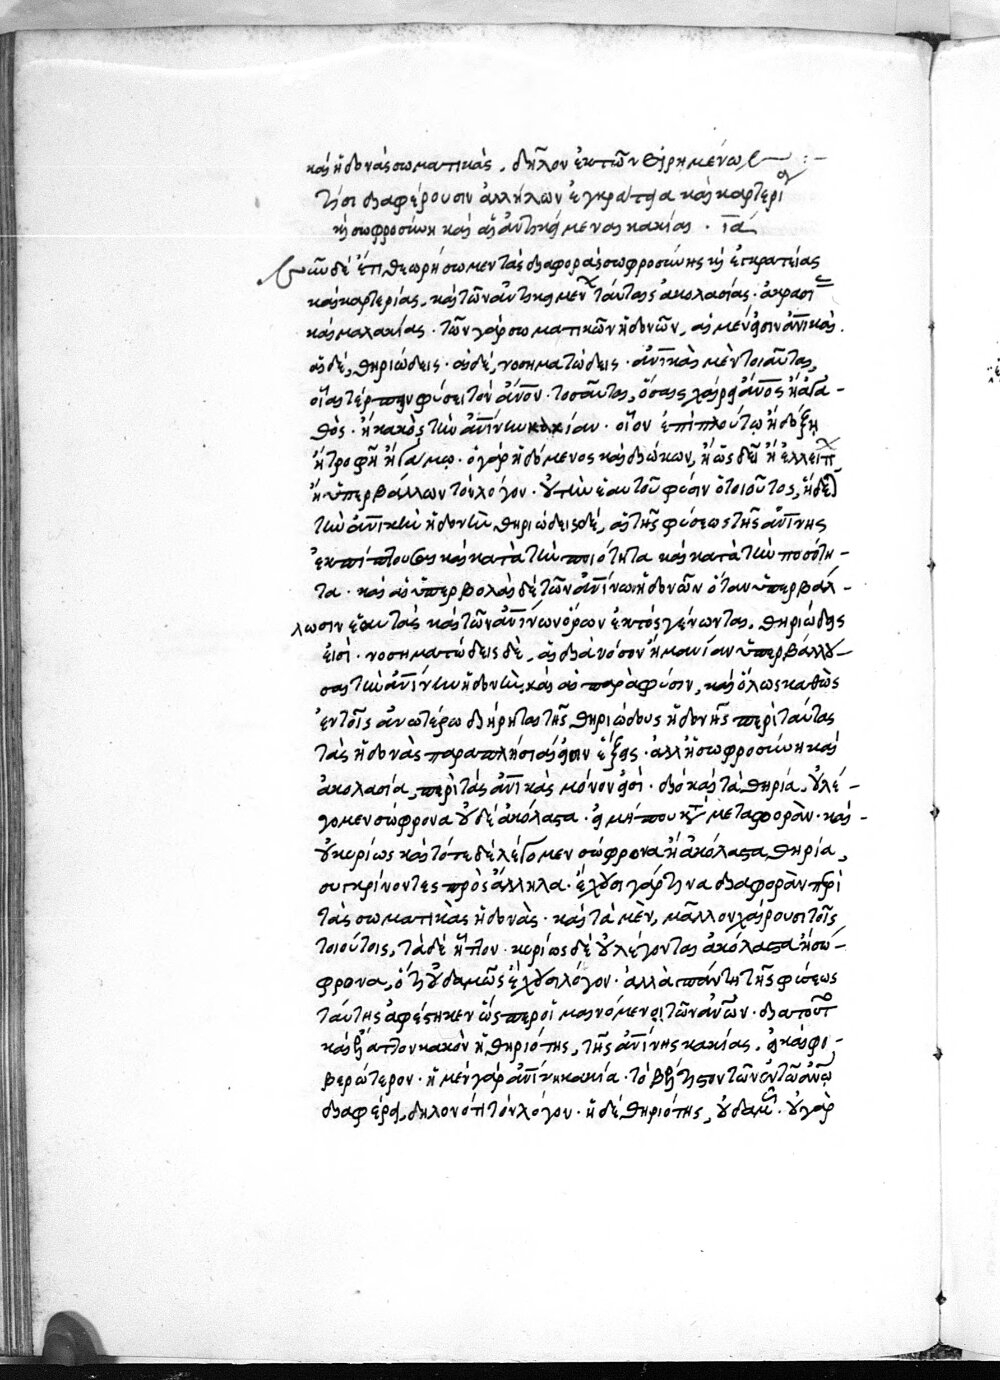 καὶ ἡδονὰς σωματικάς. δῆλον ἐκ τῶν εἰρημένων :-
τίσι διαφέρουσιν ἀλλήλων ἐγκράτεια καὶ καρτερία
κ σωφροσύνη καὶ αἱ ἀντικείμεναι κακίαι. ια
Νῦν δὲ ἐπιθεωρήσωμεν τὰς διαφορὰς σωφροσύνης κ ἐγκρατείας
καὶ καρτερίας, καὶ τῶν ἀντικειμένων ταύταις ἀκολασίας. ἀκρασίας
καὶ μαλακίας. τῶν γὰρ σωματικῶν ἡδονῶν, αἱ μέν εἰσιν ἀνικαὶ.
αἱ δὲ, θηριώδεις. αἱ δὲ, νοσηματώδεις. ἀνικαὶ μὲν τοιαῦται,
οἵαιπερ τὴν φύσει τὸν ἄνον. τοσαῦται, ὅσαις χαίρει ἄνος ἢ ἀγα-
θὸς. ἢ κακὸς τὴν ἀνίνην κακίαν. οἷον ἐπὶ πλούτῳ ἢ δόξῃ
ἢ τροφῇ ἢ γάμῳ. ὁ γὰρ ἡδόμενος καὶ διώκων, ἢ ὡς δεῖ ἢ ἐλλείπων
ἢ ὑπερβάλλων τὸν λόγον. οὐ τὴν ἑαυτοῦ φύσιν ὁ τοιοῦτος, ἥδεται
τὴν ἀνικὴν ἡδονὴν. θηριώδεις δέ, αἱ τῆς φύσεως τῆς ἀνίνης
ἐκπίπτουσαι καὶ κατὰ τὴν ποιότητα καὶ κατὰ τὴν ποσότη-
τα. καὶ αἱ ὑπερβολαὶ δὲ τῶν ἀνίνων ἡδονῶν ὅταν ὑπερβάλ-
λωσιν ἑαυτὰς καὶ τῶν ἀνίνων ὅρων ἐκτὸς γένωνται, θηριώδεις
εἰσί. νοσηματώδεις δὲ, αἱ διὰ νόσον ἢ μανίαν ὑπερβάλλου-
σαι τὴν ἀνίνην ἡδονὴν, καὶ αἱ παρὰ φύσιν, καὶ ὅλως καθὼς
ἐν τοῖς ἀνωτέρω διῄρηται τῆς θηριώδους ἡδονῆς περὶ ταύτας
τὰς ἡδονὰς παραπλήσιαί εἰσιν ἕξεις. ἀλλ' ἡ σωφροσύνη καὶ
ἀκολασία, περὶ τὰς ἀνικὰς μόνον εἰσί. διὸ καὶ τὰ θηρία, οὐ λέ-
γομεν σώφρονα οὐδὲ ἀκόλαστα. εἰ μή που κατὰ μεταφοράν. καὶ-
οὐ κυρίως καὶ τότε δὲ λέγομεν σώφρονα ἢ ἀκόλαστα θηρία,
συγκρίνοντες πρὸς ἄλληλα. ἔχουσι γάρ τινα διαφορὰν περὶ
τὰς σωματικὰς ἡδονὰς. καὶ τὰ μὲν, μᾶλλον χαίρουσι τοῖς
τοιούτοις, τὰ δὲ ἧττον. κυρίως δὲ οὐ λέγονται ἀκόλαστα ἢ σώ-
φρονα, ὅτι οὐδαμῶς ἔχουσι λόγον. ἀλλὰ πάντῃ τῆς φύσεως
ταύτης ἀφέστηκεν ὥσπερ οἱ μαινόμενοι τῶν ἀνων. διὰ τοῦτο
καὶ ἔλαττον κακὸν ἡ θηριότης, τῆς ἀνίνης κακίας. εἰ καὶ φο-
βερώτερον. ἡ μὲν γὰρ ἀνίνη κακία. τὸ βέλτιστον τῶν ἐν τῷ ἀνῳ
διαφέρει, δηλονότι τὸν λόγον. ἡ δὲ θηριότης, οὐδαμῶς. οὐ γὰρ